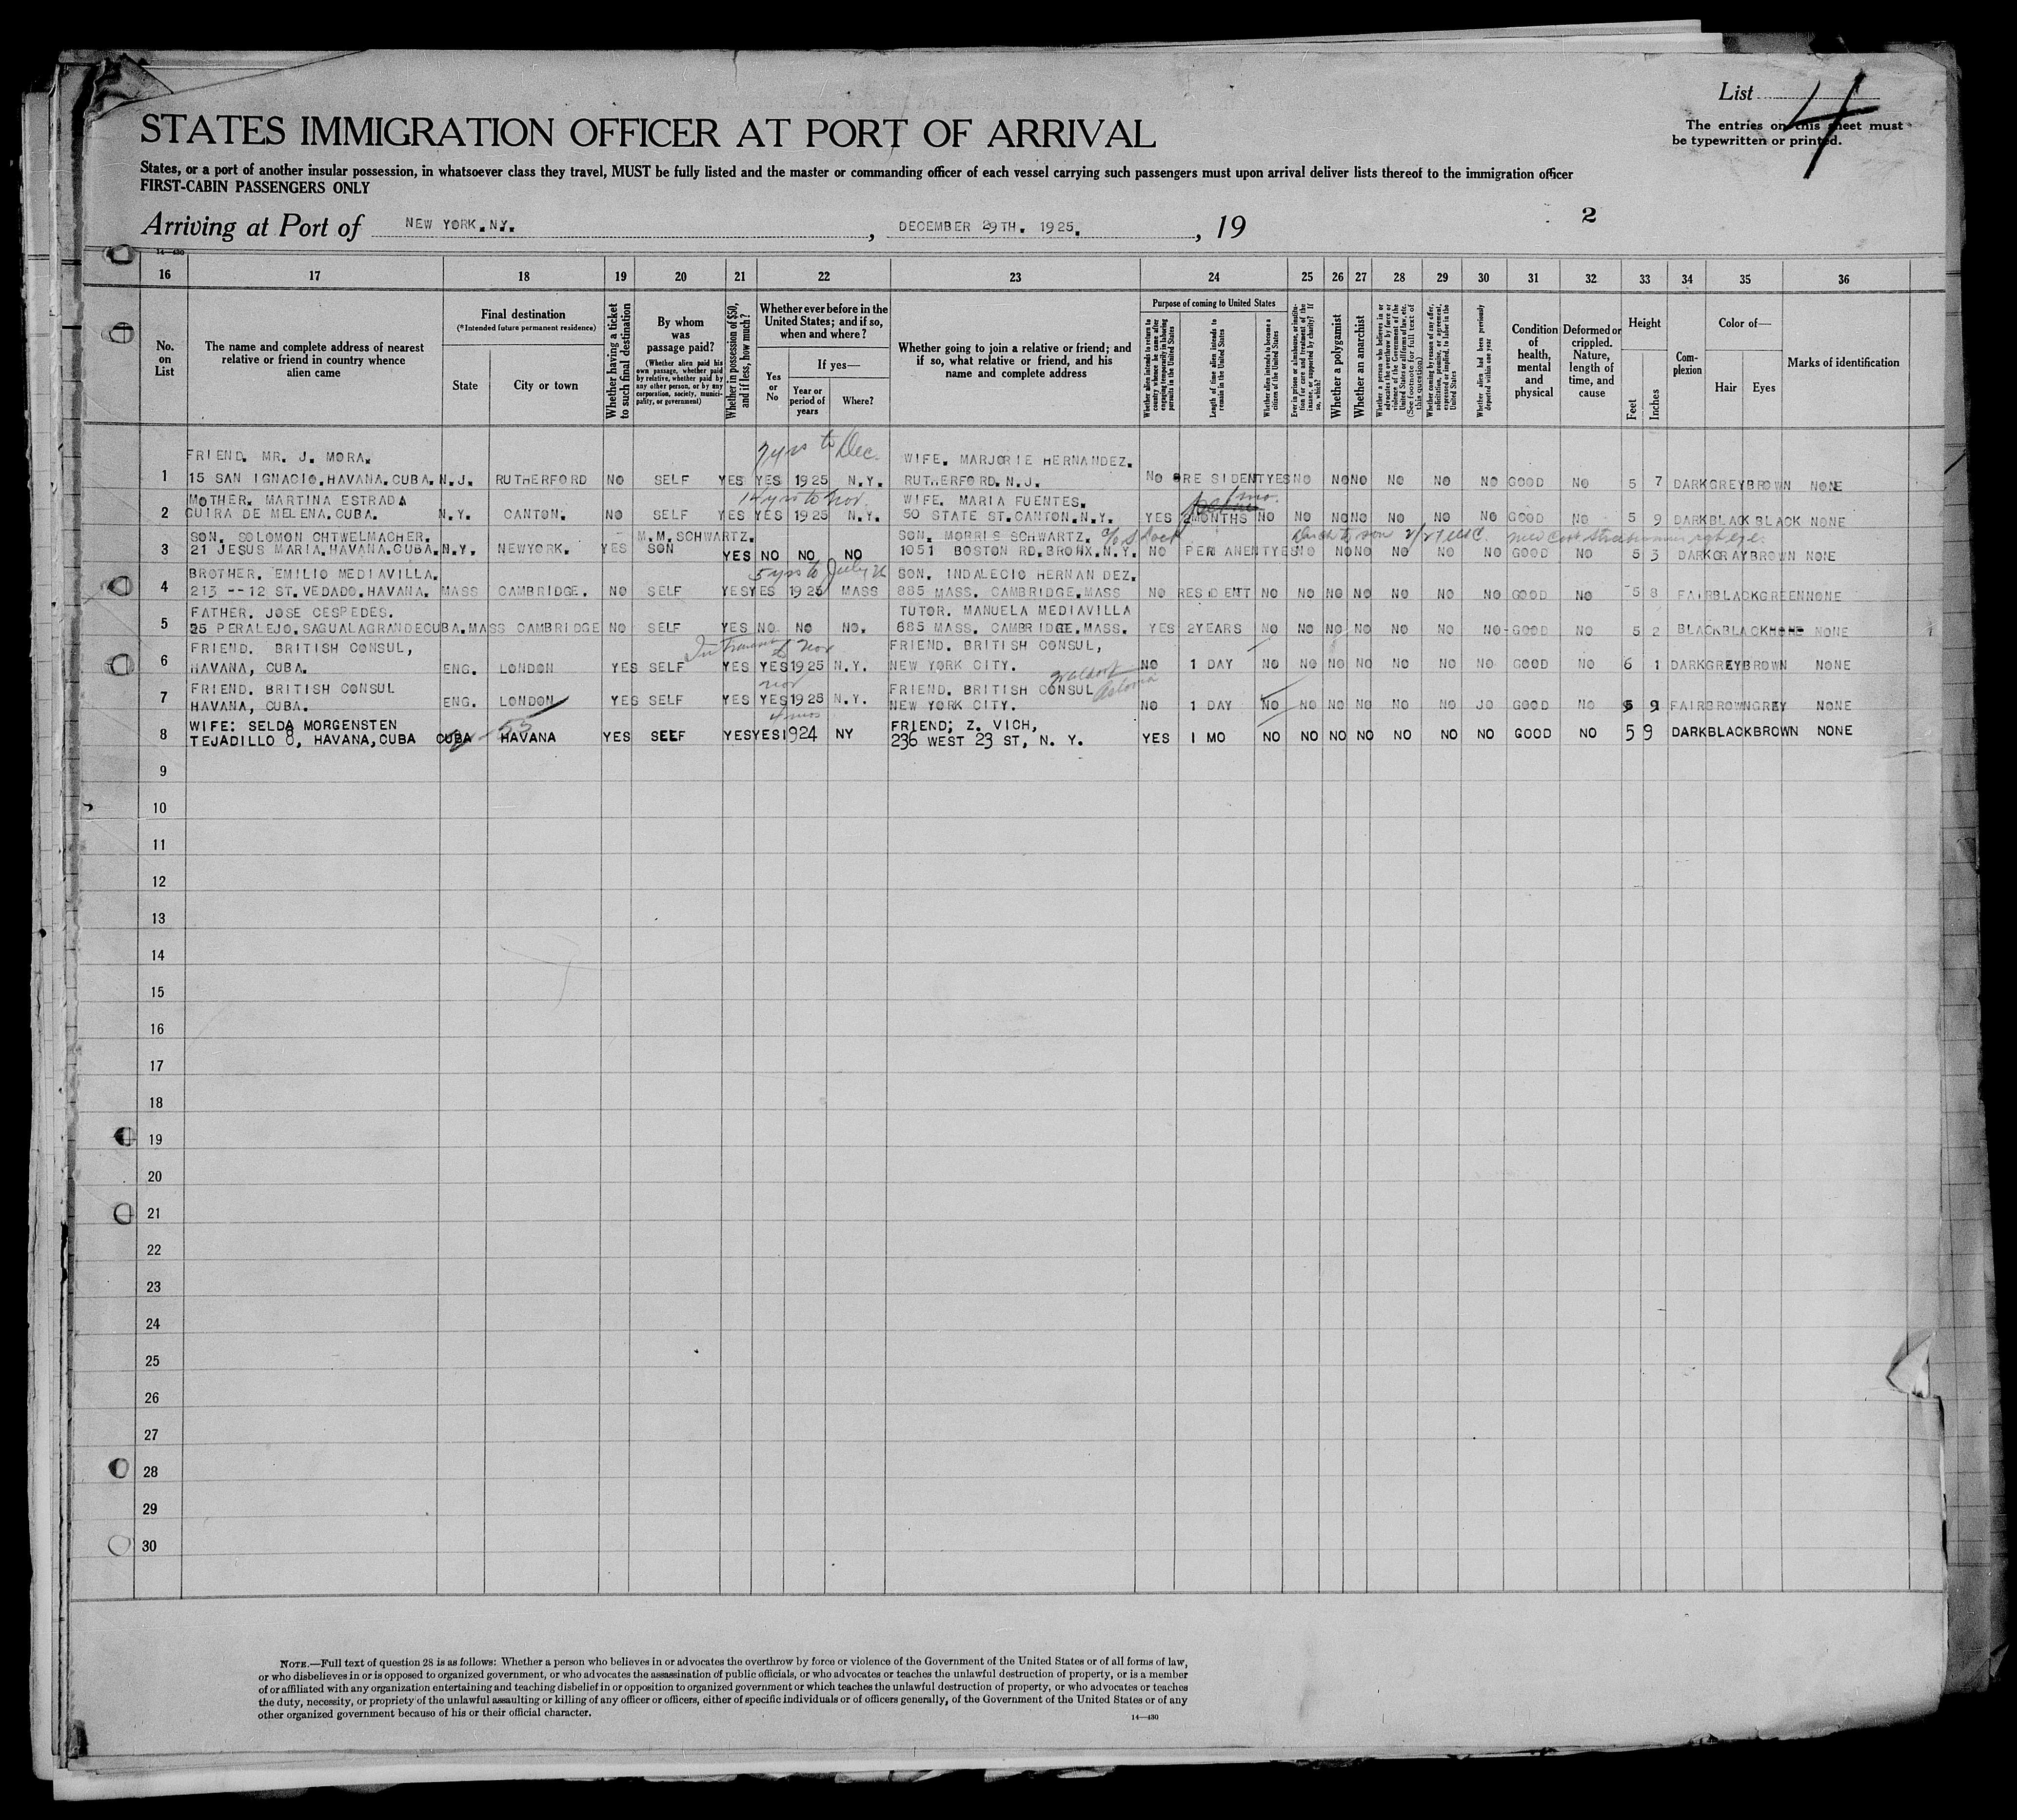 List 4
The entries on this sheet must
be typewritten or printed.
STATES IMMIGRATION OFFICER AT PORT OF ARRIVAL
States, or a port of another insular possession, in whatsoever class they travel, MUST be fully listed and the master or commanding officer of each vessel carrying such passengers must upon arrival deliver lists thereof to the immigration officer
FIRST-CABIN PASSENGERS ONLY
Arriving at Port of NEW YORK.N.Y. , DECEMBER 29TH. 1925. , 19
2
14—430
16 17 18 19 20 21 22 23 24 25 26 27 28 29 30 31 32 33 34 35 36
No. on List
The name and complete address of nearest relative or friend in country whence alien came
Final destination
(*Intended future permanent residence)
State
City or town
Whether having a ticket to such final destination
By whom was passage paid?
(Whether alien paid his own passage, whether paid by relative, whether paid by any other person, or by any corporation, society, municipality, or government)
Whether in possession of $50, and if less, how much?
Whether ever before in the United States; and if so, when and where?
Yes or No
If yes—
Year or period of years
Where?
Whether going to join a relative or friend; and if so, what relative or friend, and his name and complete address
Purpose of coming to United States
Whether alien intends to return to country whence he came after engaging temporarily in laboring pursuits in the United States
Length of time alien intends to remain in the United States
Whether alien intends to become a citizen of the United States
Ever in prison or almshouse, or institution for care and treatment of the insane, or supported by charity? If so, which?
Whether a polygamist
Whether an anarchist
Whether a person who believes in or advocates the overthrow by force or violence of the Government of the United States or all forms of law, etc. (See footnote for full text of this question)
Whether coming by reason of any offer, solicitation, promise, or agreement, expressed or implied, to labor in the United States
Whether alien had been previously deported within one year
Condition of health, mental and physical
Deformed or crippled. Nature, length of time, and cause
Height
Feet
Inches
Complexion
Color of—
Hair Eyes
Marks of identification
7 yrs to Dec.
FRIEND. MR. J. MORA. WIFE. MARJORIE HERNANDEZ.
1 15 SAN IGNACIO.HAVANA.CUBA. N.J. RUTHERFORD NO SELF YES YES 1925 N.Y. RUTHERFORD.N.J. NO RESIDENT YES NO NO NO NO NO NO GOOD NO 5 7 DARK GREY BROWN NONE
MOTHER. MARTINA ESTRADA to Nov. WIFE. MARIA FUENTES. 1 mo.
2 GUIRA DE MELENA.CUBA. N.Y. CANTON. NO SELF YES YES 1925 N.Y. 50 STATE ST.CANTON.N.Y. YES 2MONTHS NO NO NO NO NO NO NO GOOD NO 5 9 DARK BLACK BLACK NONE
SON. SOLOMON CHTWELMACHER. M.M.SCHWARTZ. SON. MORRIS SCHWARTZ. c/o
3 21 JESUS MARIA.HAVANA.CUBA. N.Y. NEWYORK. YES SON YES NO NO NO 1051 BOSTON RD.BRONX.N.Y. NO PERMANENT YES NO NO NO NO NO NO GOOD NO 5 3 DARK GRAY BROWN NONE
BROTHER. EMILIO MEDIAVILLA. 5 yrs to July SON. INDALECIO HERNANDEZ.
4 213 --12 ST.VEDADO.HAVANA. MASS CAMBRIDGE. NO SELF YES YES 1925 MASS 885 MASS. CAMBRIDGE.MASS NO RESIDENT NO NO NO NO NO NO NO GOOD NO 5 8 FAIR BLACK GREEN NONE
FATHER. JOSE CESPEDES. TUTOR. MANUELA MEDIAVILLA
5 25 PERALEJO.SAGUALAGRANDECUBA. MASS CAMBRIDGE NO SELF YES NO. NO NO. 685 MASS. CAMBRIDGE.MASS. YES 2YEARS NO NO NO NO NO NO NO GOOD NO 5 2 BLACK BLACK NONE
FRIEND. BRITISH CONSUL, In Transit Nov FRIEND. BRITISH CONSUL,
6 HAVANA, CUBA. ENG. LONDON YES SELF YES YES 1925 N.Y. NEW YORK CITY. NO 1 DAY NO NO NO NO NO NO NO GOOD NO 6 1 DARK GREY BROWN NONE
FRIEND. BRITISH CONSUL Nov FRIEND. BRITISH CONSUL Waldorf Astoria
7 HAVANA, CUBA. ENG. LONDON YES SELF YES YES 1925 N.Y. NEW YORK CITY. NO 1 DAY NO NO NO NO NO NO JO GOOD NO 5 9 FAIR BROWN GREY NONE
WIFE: SELDA MORGENSTEN 53 4 mos FRIEND; Z. VICH,
8 TEJADILLO 8, HAVANA,CUBA CUBA HAVANA YES SELF YES YES 1924 NY 236 WEST 23 ST, N. Y. YES 1 MO NO NO NO NO NO NO NO GOOD NO 5 9 DARK BLACK BROWN NONE
9
10
11
12
13
14
15
16
17
18
19
20
21
22
23
24
25
26
27
28
29
30
NOTE.—Full text of question 28 is as follows: Whether a person who believes in or advocates the overthrow by force or violence of the Government of the United States or of all forms of law,
or who disbelieves in or is opposed to organized government, or who advocates the assassination of public officials, or who advocates or teaches the unlawful destruction of property, or is a member
of or affiliated with any organization entertaining and teaching disbelief in or opposition to organized government or which teaches the unlawful destruction of property, or who advocates or teaches
the duty, necessity, or propriety of the unlawful assaulting or killing of any officer or officers, either of specific individuals or of officers generally, of the Government of the United States or of any
other organized government because of his or their official character.
14—430